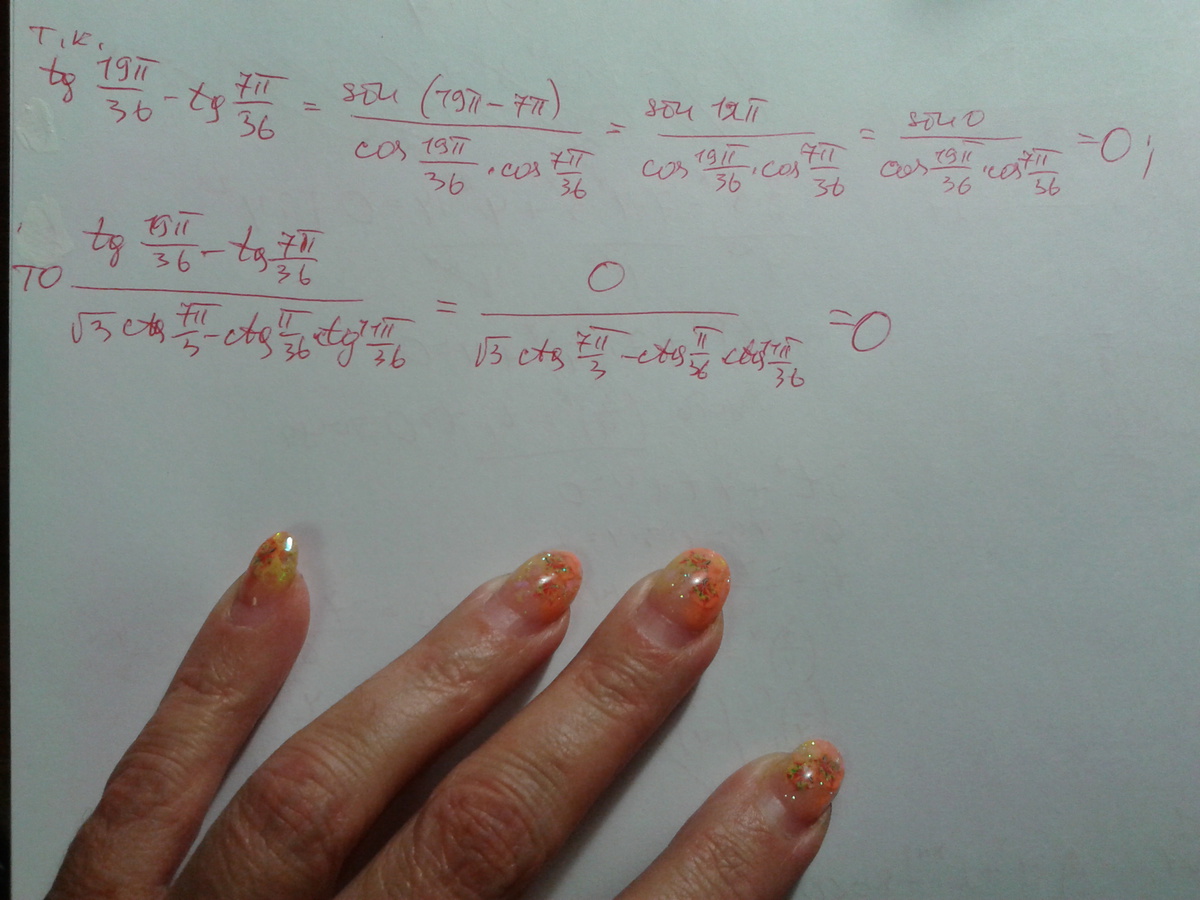 т.к.
tg 19π/36 - tg 7π/36 = sin (19π - 7π) / cos 19π/36 · cos 7π/36 = sin 12π / cos 19π/36 · cos 7π/36 = sin 0 / cos 19π/36 · cos 7π/36 = 0;
то tg 19π/36 - tg 7π/36 / √3 ctg 7π/3 - ctg π/36 · tg π/36 = 0 / √3 ctg 7π/3 - ctg π/36 · ctg π/36 = 0